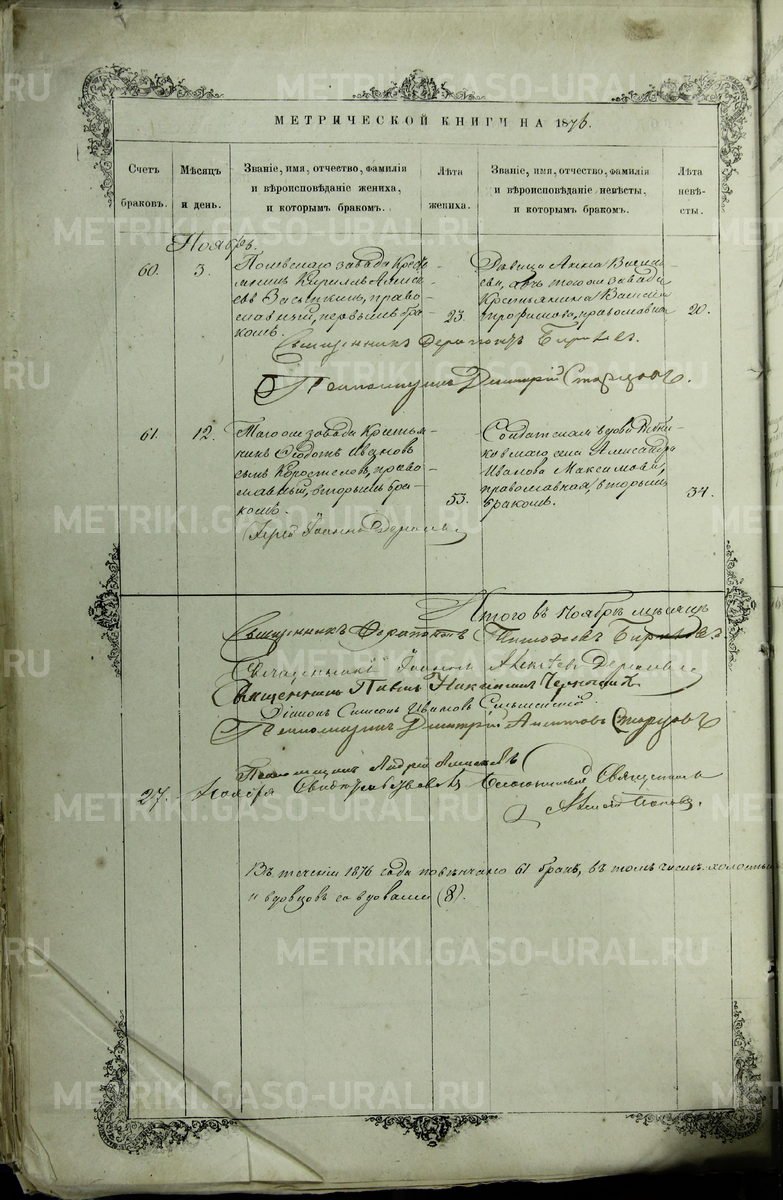 МЕТРИЧЕСКОЙ КНИГИ НА 1876.
Счетъ
браковъ.
Мѣсяцъ
и день.
Званіе, имя, отчество, фамилія
и вѣроисповѣданіе жениха,
и которымъ бракомъ.
Лѣта
жениха.
Званіе, имя, отчество, фамилія
и вѣроисповѣданіе невѣсты,
и которымъ бракомъ.
Лѣта
невѣ-
сты.
Ноябрь.
60.
3.
завода Крестья
нинъ Кириллъ
евъ право
славный, первымъ бра
комъ.
23.
Дѣвица Анна Василь
ева, дочь того же завода
Крестьянина Василія
православная
20.
Священникъ
Псаломщикъ Димитрій Старцовъ.
61.
12.
Того же завода Крестья
нинъ Ѳедотъ Ивановъ
сынъ Коростелевъ, право
славный, вторымъ бра
комъ.
53.
Солдатская вдова
села Александра
Иванова Максимова,
православная, вторымъ
бракомъ.
34.
Іерей Іоаннъ
Итого въ Ноябрѣ мѣсяцѣ
Священникъ
Священникъ Іоаннъ Алексѣевъ
Священникъ Павелъ
Діаконъ Симеонъ Ивановъ
Псаломщикъ Димитрій Старцовъ
Псаломщикъ Андрей
27. Ноября Свидѣтельствовалъ Благочинный Священникъ
Поповъ.
Въ теченіи 1876 года повѣнчано 61 бракъ, въ томъ числѣ холостыхъ
и вдовцовъ со вдовами (8).
METRIKI.GASO-URAL.RU